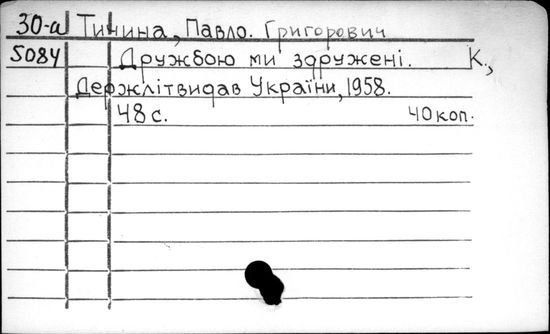 30-а Тичина, Павло. Григорович
5084 Дружбою ми здружені. К.,
Держлітвидав України, 1958.
48 с. 40 коп.